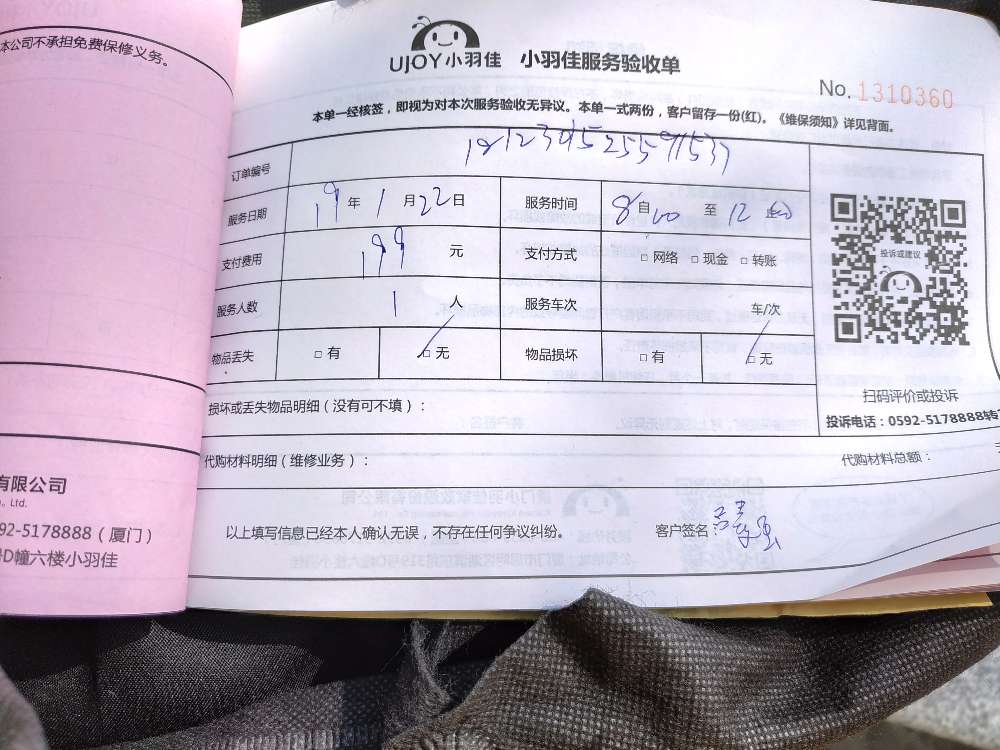 本公司不承担免费保修义务。
UJOY小羽佳 小羽佳服务验收单
No. 1310360
本单一经核签，即视为对本次服务验收无异议。本单一式两份，客户留存一份(红)。《维保须知》详见背面。
订单编号
服务日期 19 年 1 月 22 日 服务时间 8 自 00 至 12
支付费用 199 元 支付方式 □ 网络 □ 现金 □ 转账
投诉或建议
服务人数 1 人 服务车次 车/次
物品丢失 □ 有 □ 无 物品损坏 □ 有 □ 无
扫码评价或投诉
投诉电话：0592-5178888转
损坏或丢失物品明细（没有可不填）：
代购材料明细（维修业务）： 代购材料总额：
以上填写信息已经本人确认无误，不存在任何争议纠纷。 客户签名：
有限公司
Ltd.
92-5178888（厦门）
D幢六楼小羽佳